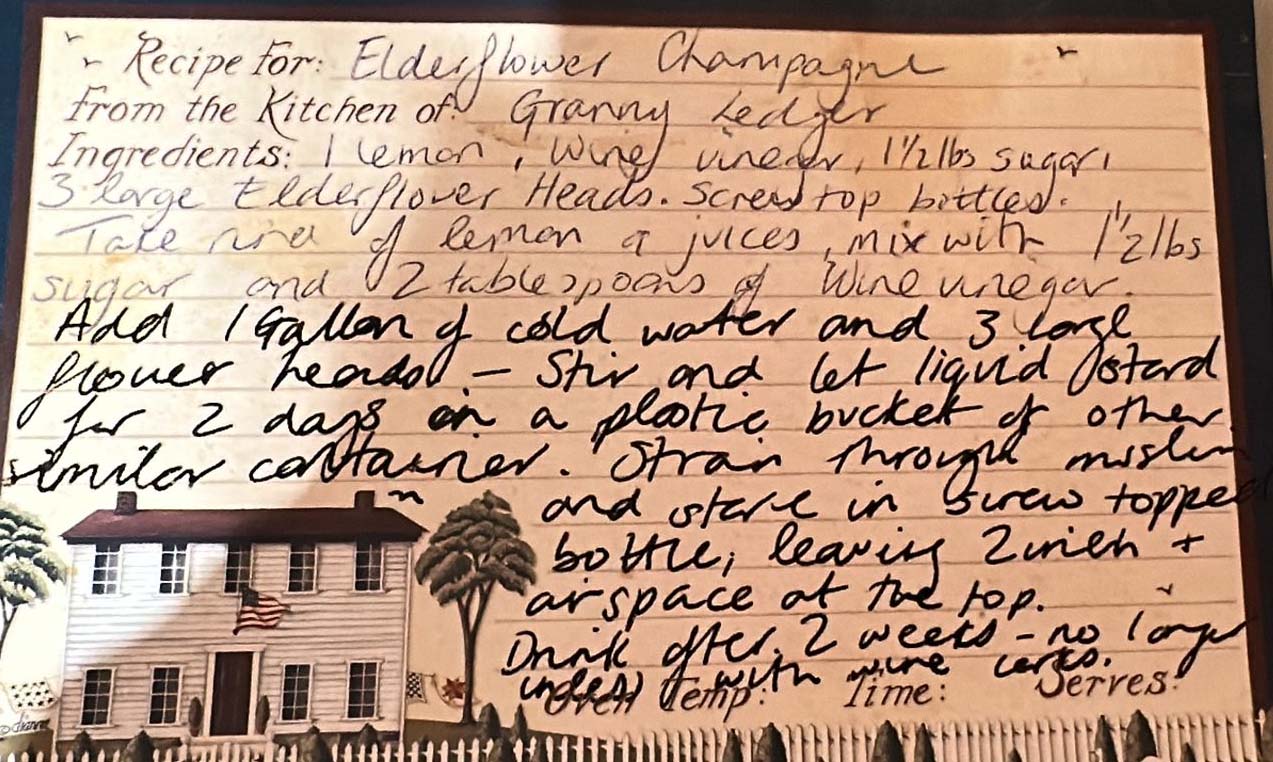 Recipe For: Elderflower Champagne
From the Kitchen of: Granny Ledger
Ingredients: 1 lemon, Wine vinegar, 1 1/2 lbs sugar,
3 large Elderflower Heads. Screw top bottles.
Take rind of lemon & juices, mix with 1 1/2 lbs
sugar and 2 tablespoons of Wine vinegar.
Add 1 Gallon of cold water and 3 large
flower heads – Stir and let liquid stand
for 2 days in a plastic bucket or other
similar container. Strain through muslin
and store in screw topped
bottle, leaving 2 inch +
airspace at the top.
Drink after 2 weeks – no longer
unless with wine corks.
Oven Temp: Time: Serves: